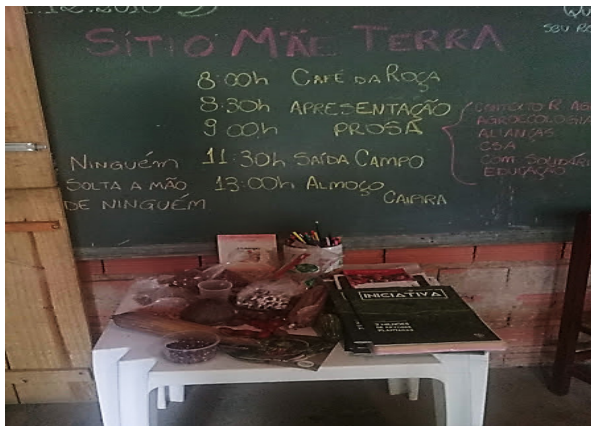 SÍTIO MÃE TERRA
8:00h CAFÉ DA ROÇA
8:30h APRESENTAÇÃO
9:00h PROSA
11:30h SAÍDA CAMPO
13:00h ALMOÇO
CAIPIRA
CONTEXTO R. AG
AGROECOLOGIA
ALIANÇAS
CSA
COM SOLIDÁRI
EDUCAÇÃO
NINGUÉM
SOLTA A MÃO
DE NINGUÉM
INICIATIVA